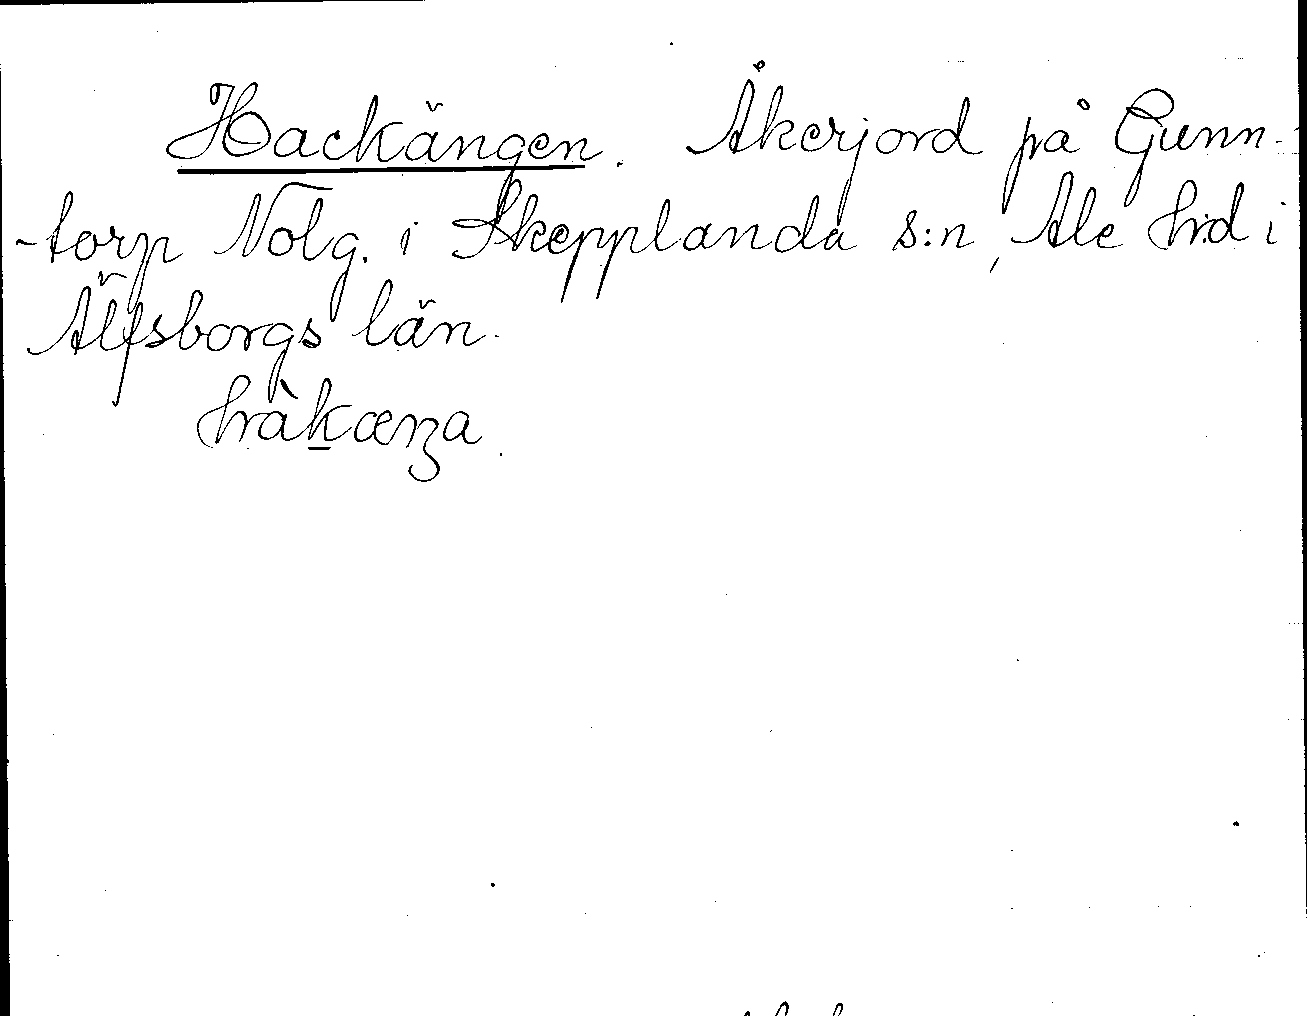 Hackängen. Åkerjord på Gunn-
-torp Nolg. i Skepplanda s:n, Ale hd i
Älfsborgs län.
hràkæŋa